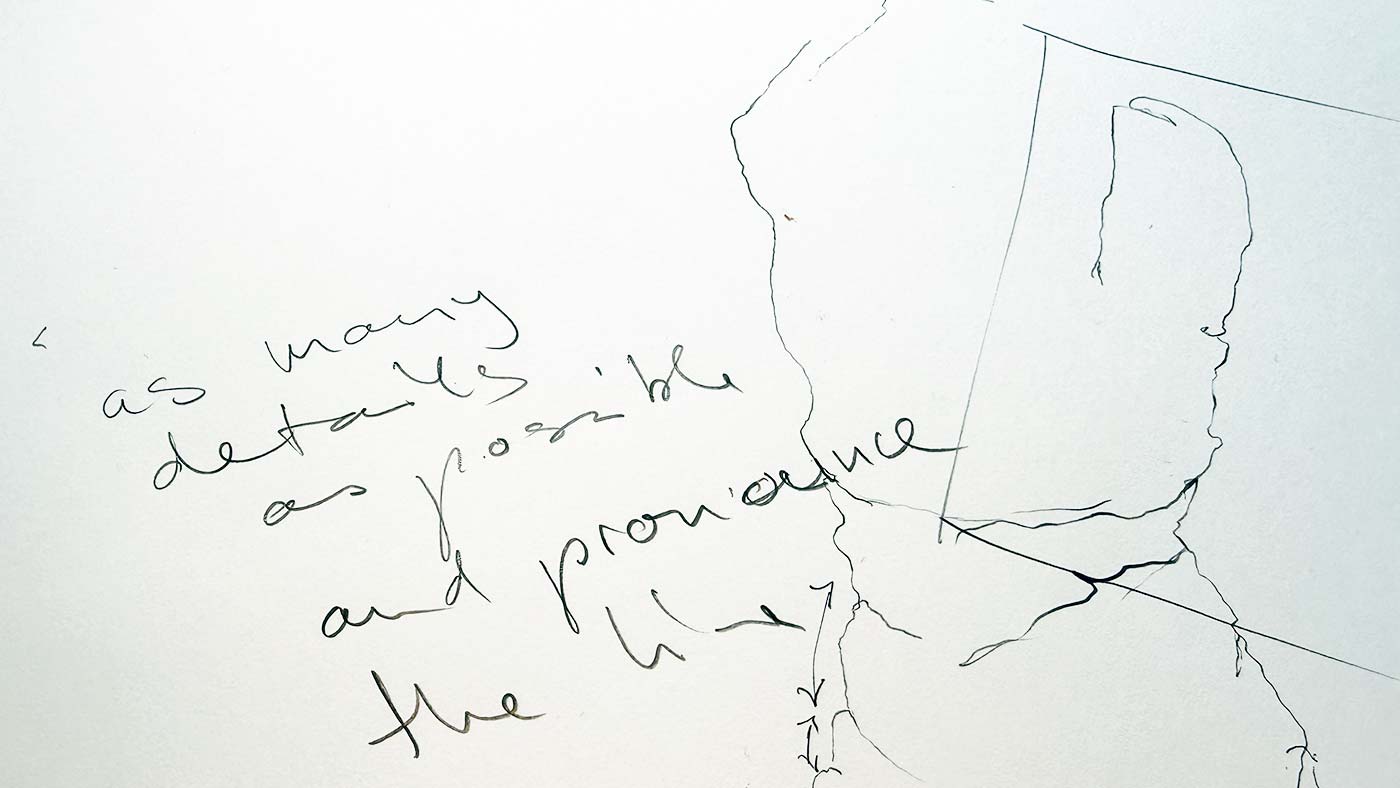 as many
details
as possible
and pronounce
the line